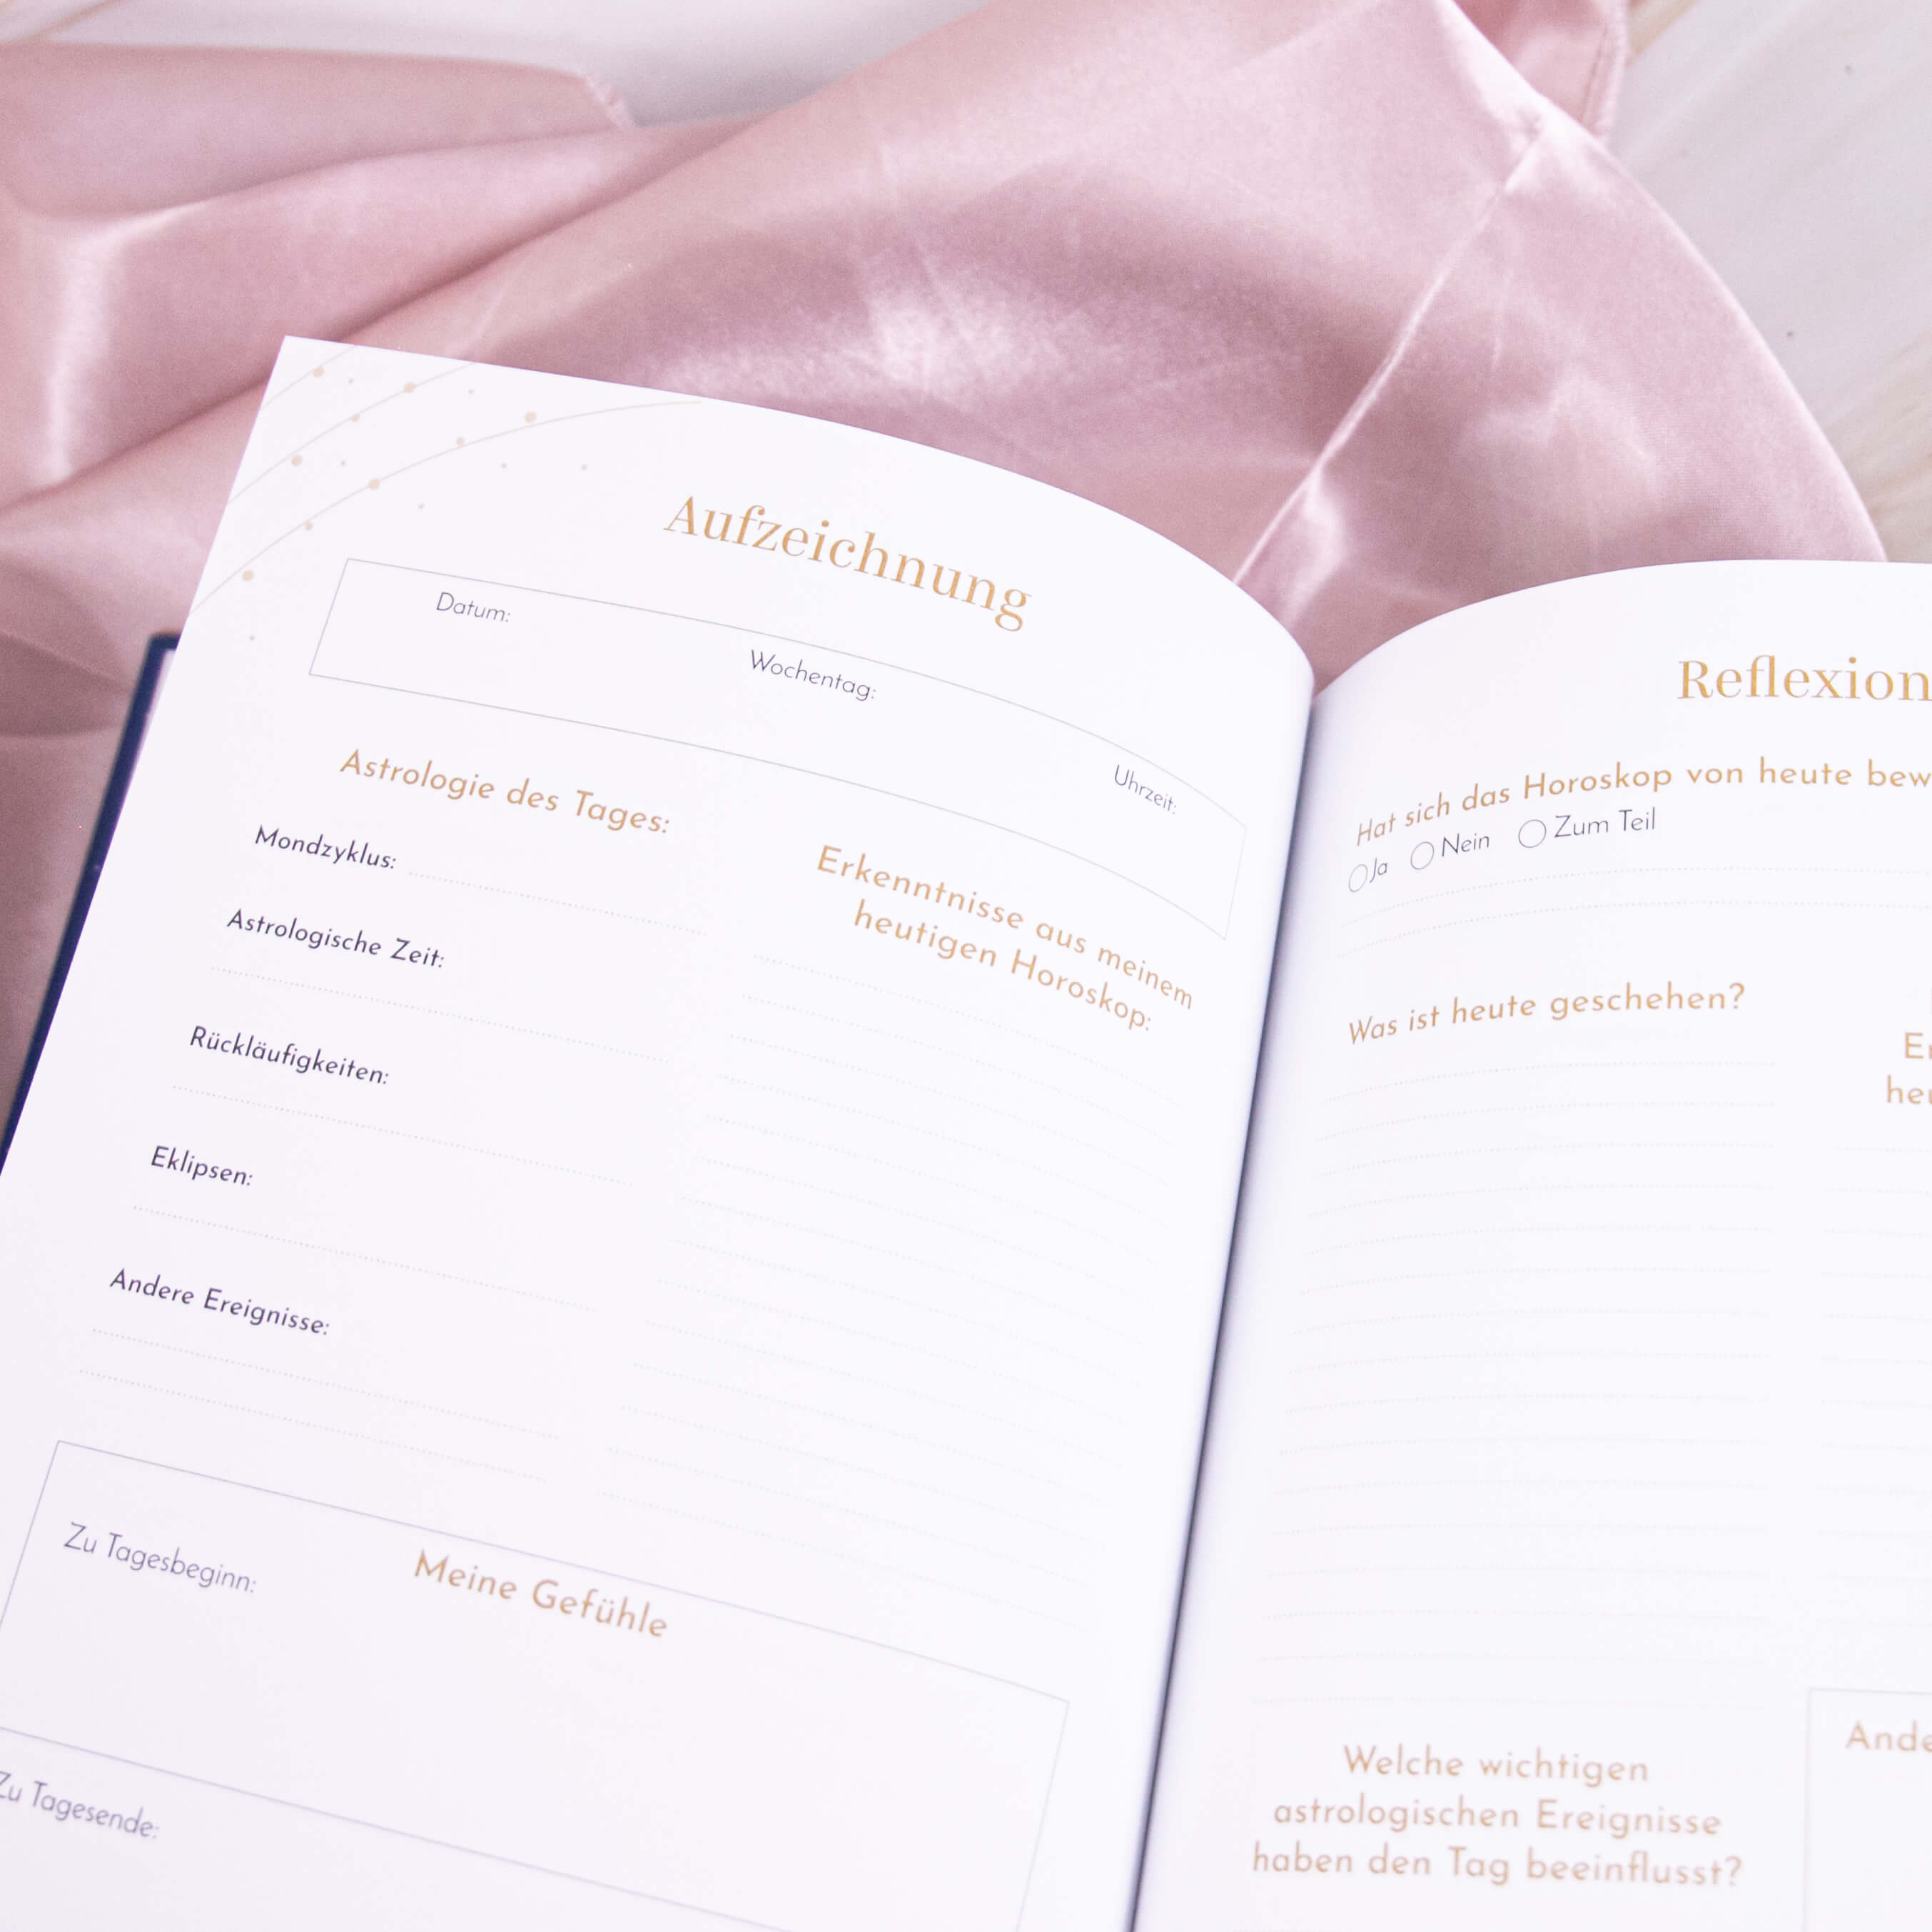 Aufzeichnung
Datum:
Wochentag:
Uhrzeit:
Astrologie des Tages:
Mondzyklus:
Astrologische Zeit:
Rückläufigkeiten:
Eklipsen:
Andere Ereignisse:
Erkenntnisse aus meinem
heutigen Horoskop:
Meine Gefühle
Zu Tagesbeginn:
Zu Tagesende:
Reflexion
Hat sich das Horoskop von heute bew
Ja Nein Zum Teil
Was ist heute geschehen?
Welche wichtigen
astrologischen Ereignisse
haben den Tag beeinflusst?